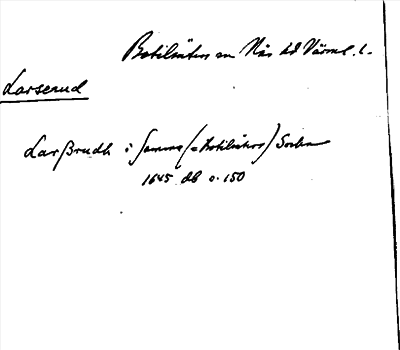 Botilsäters sn Näs hd Värml. l.
Larserud
Larßrudh i Samme (= Botilsäters) Sochn
1645 db s. 150